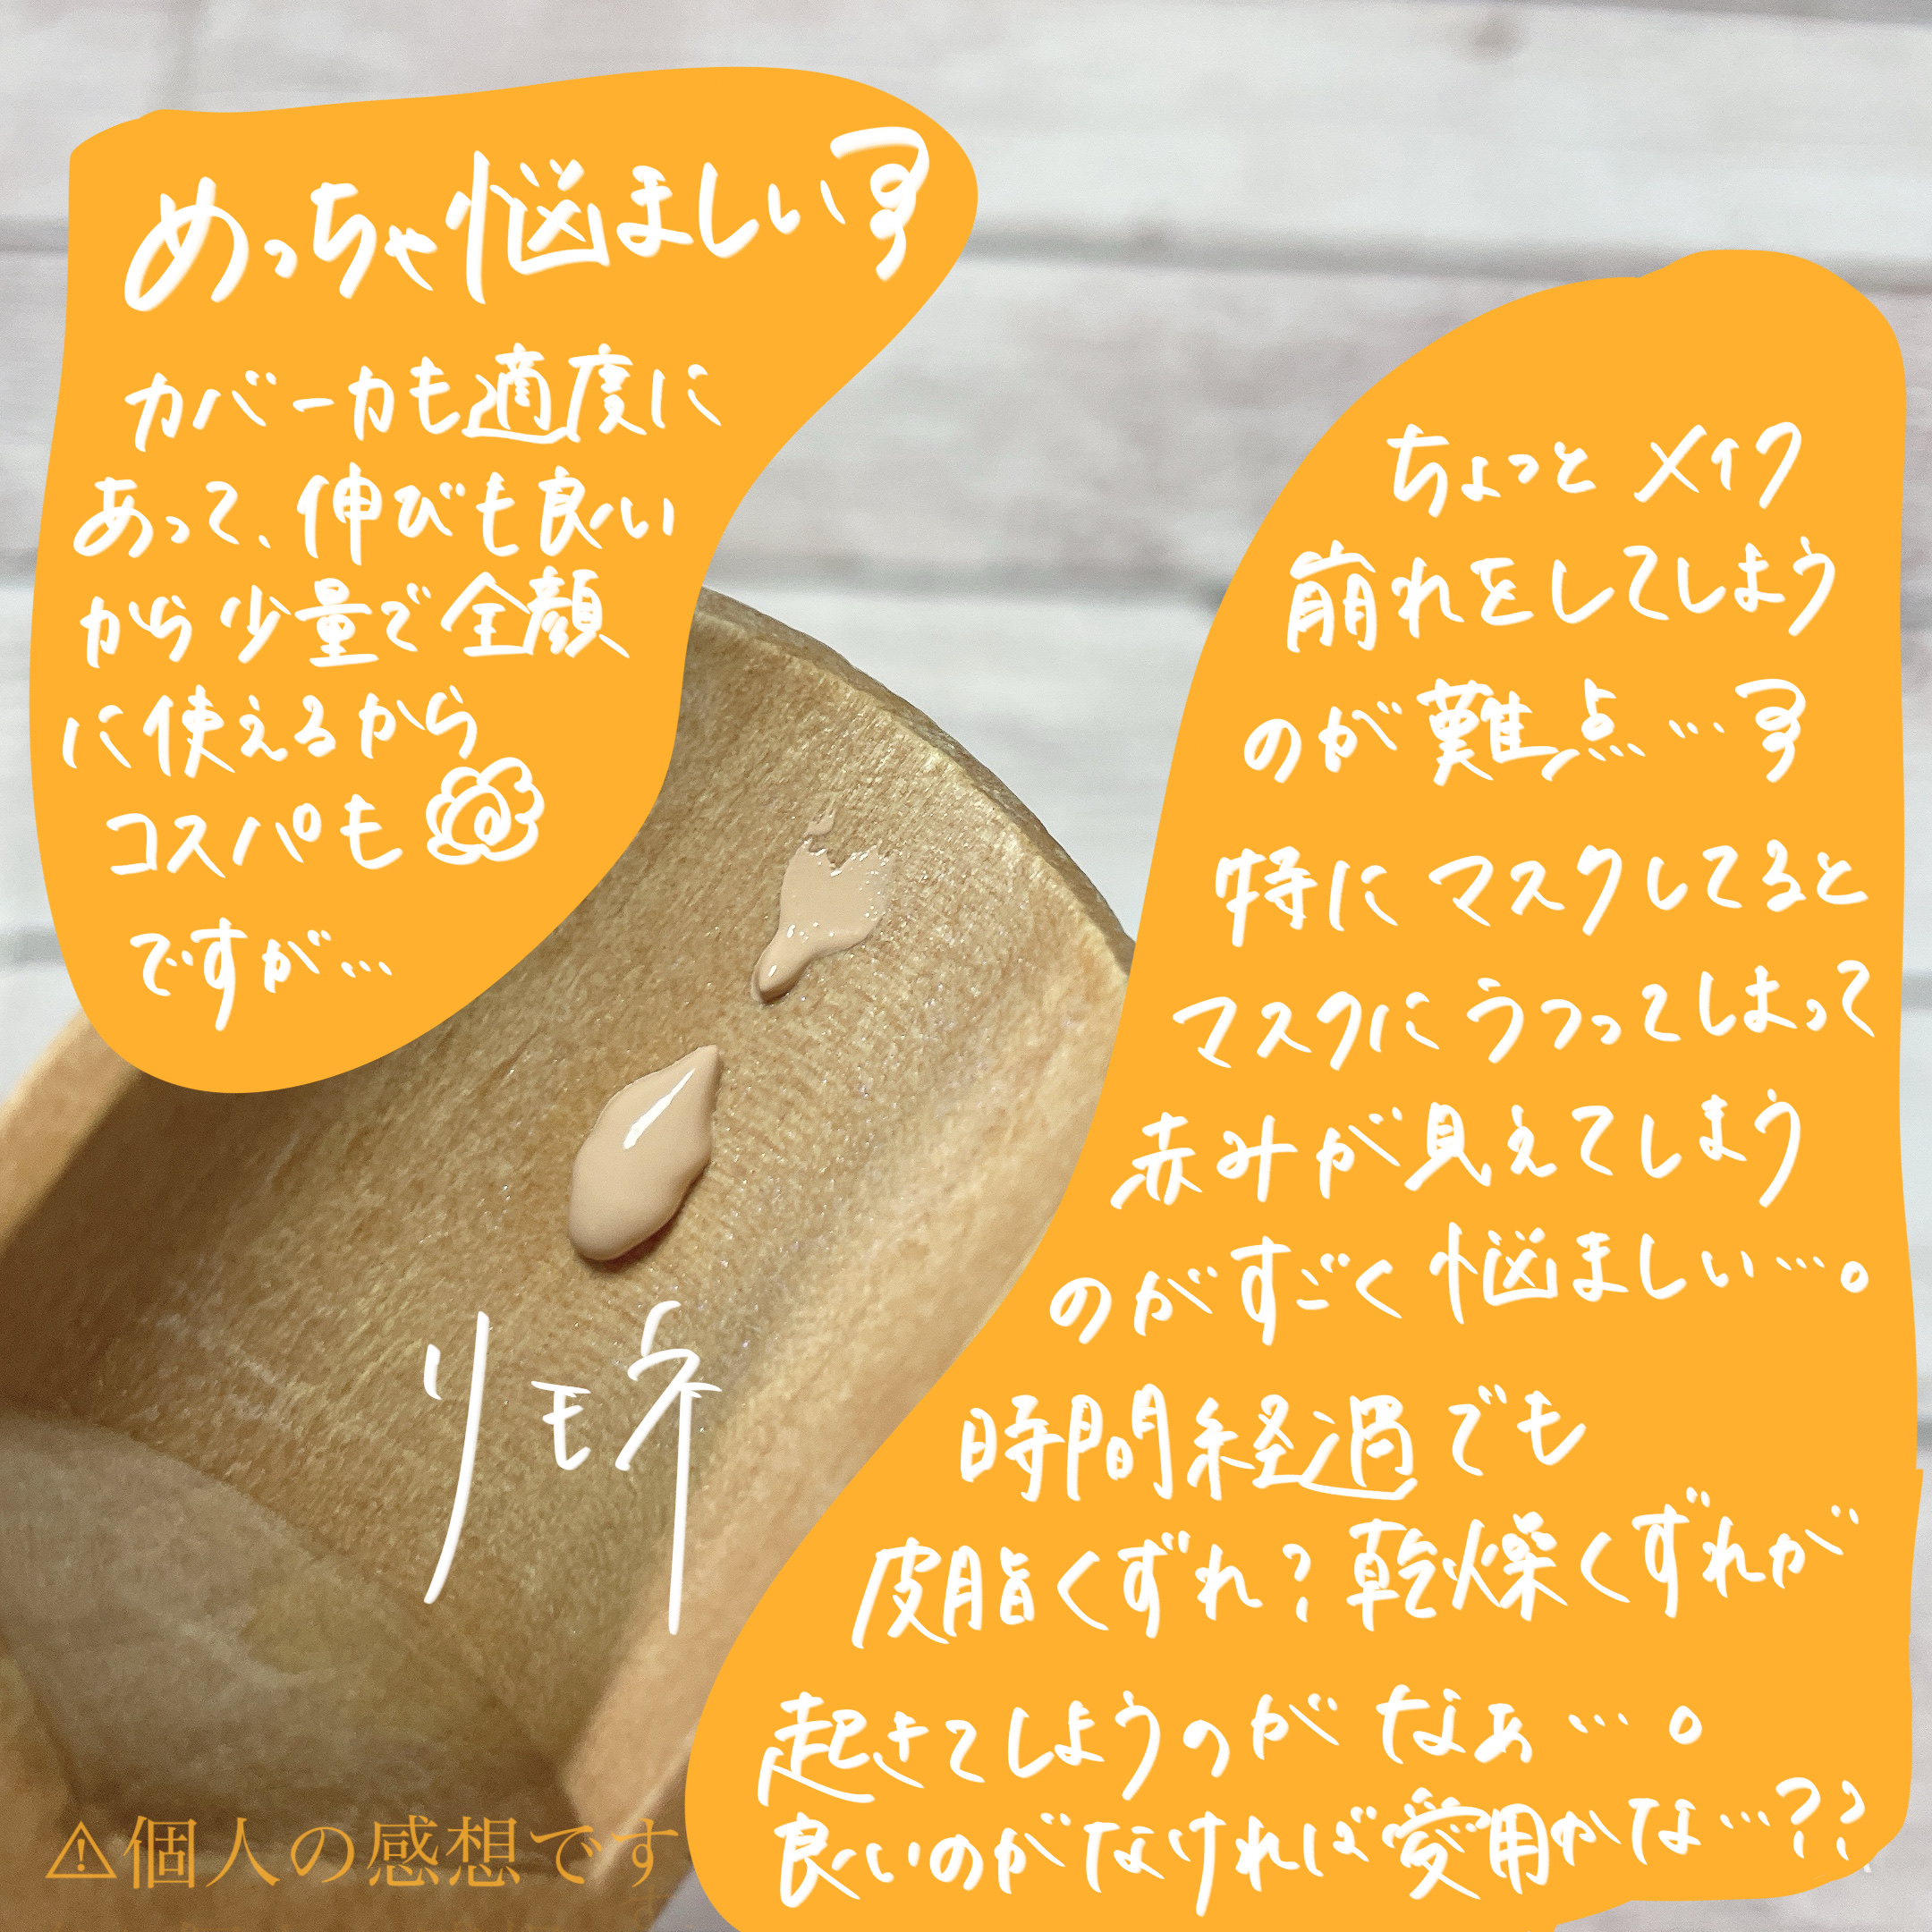 めっちゃ悩ましい
カバー力も適度に
あって、伸びも良い
から少量で全顔
に使えるから
コスパも
ですが…
ちょっとメイク
崩れをしてしまう
のが難点…
特にマスクしてると
マスクにうつってしまって
赤みが見えてしまう
のがすごく悩ましい…。
時間経過でも
皮脂くずれ?乾燥くずれが
起きてしまうのがなぁ…。
良いのがなければ愛用かな…??
リモネ
⚠個人の感想です